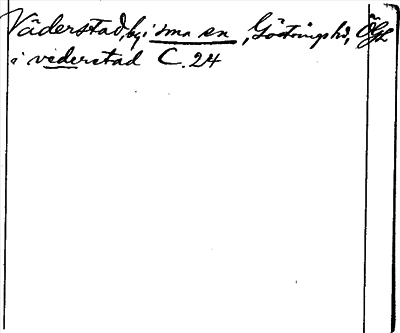 Väderstad, by i sma sn, Göstrings hd, Ögl
i vederstad C. 24